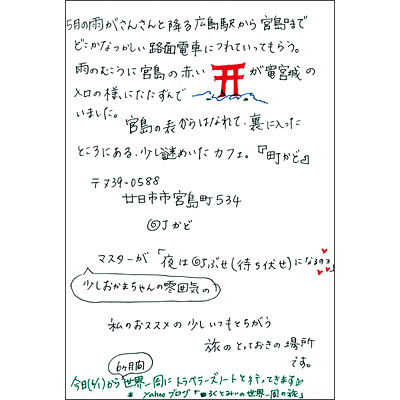 5月の雨がさんさんと降る広島駅から宮島まで
どこかなつかしい路面電車につれていってもらう。
雨のむこうに宮島の赤い が竜宮城の
入口の様にたたずんで
いました。
宮島の表からはなれて、裏に入った
ところにある、少し謎めいたカフェ。『町かど』
〒739-0588
廿日市市宮島町534
◎Jかど
マスターが「夜は◎Jぶせ(待ち伏せ)になるのョ」
少しおかまちゃんの雰囲気の?
私のおススメの少しいつもとちがう
旅のとっておきの場所
です。
6ヶ月間
今日(5/1)から世界一周にトラベラーズノートと行ってきます
* Yahooブログ「 ろくとみぃの世界一周の旅」